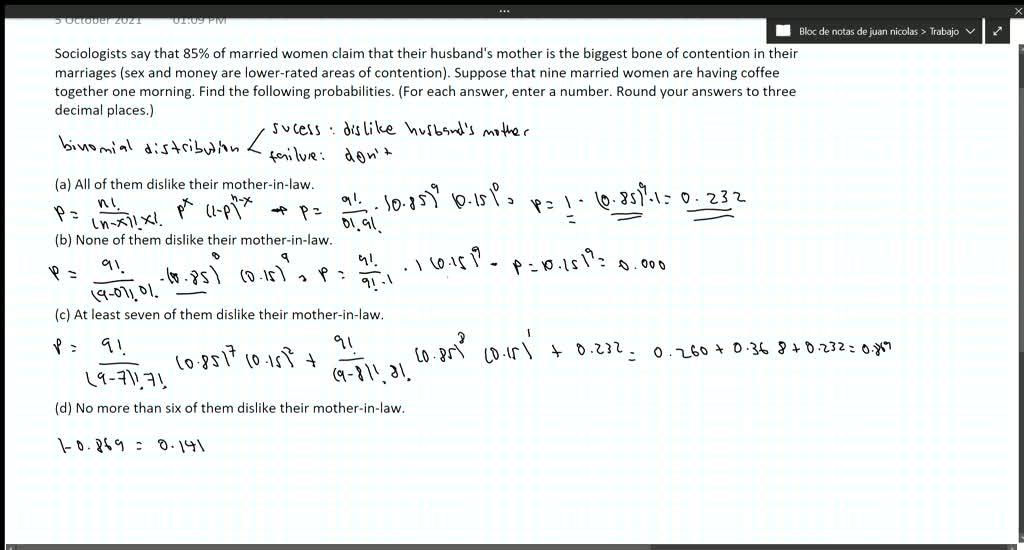 ...
5 October 2021 01:09 PM
Bloc de notas de juan nicolas > Trabajo
Sociologists say that 85% of married women claim that their husband's mother is the biggest bone of contention in their
marriages (sex and money are lower-rated areas of contention). Suppose that nine married women are having coffee
together one morning. Find the following probabilities. (For each answer, enter a number. Round your answers to three
decimal places.)
sucess : dislike husband's mother
binomial distribution <
failure: don't
(a) All of them dislike their mother-in-law.
P = n!/(n-x)!.x! p^x (1-p)^n-x → P = 9!/0!.9! . (0.85)^9 (0.15)^0 , P = 1 . (0.85)^9 . 1 = 0.232
(b) None of them dislike their mother-in-law.
P = 9!/(9-0)!.0! . (0.85)^0 (0.15)^9 , P = 9!/9!.1 . 1 (0.15)^9 - P = (0.15)^9 = 0.000
(c) At least seven of them dislike their mother-in-law.
P = 9!/(9-7)!.7! (0.85)^7 (0.15)^2 + 9!/(9-8)!.8! (0.85)^8 (0.15)^1 + 0.232 = 0.260 + 0.368 + 0.232 = 0.869
(d) No more than six of them dislike their mother-in-law.
1-0.869 = 0.141